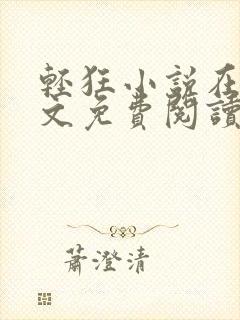 輕狂小說在
文免費閱讀
蕭澄清